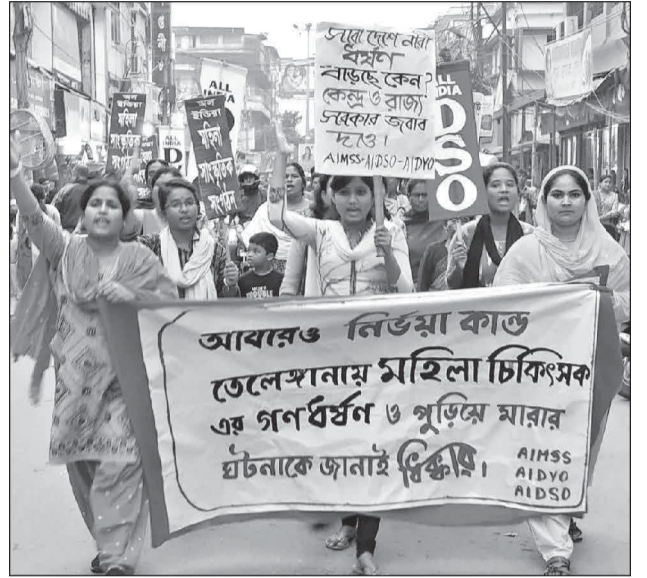 সারা দেশে নারী
ধর্ষণ
বাড়ছে কেন?
কেন্দ্র ও রাজ্য
সরকার জবাব
দাও।
AIMSS-AIDSO-AIDYO
ALL
INDIA
DSO
ALL
INDIA
D
মহিলা
সাংস্কৃতিক
সংগঠন
মহিলা
সাংস্কৃতিক
সংগঠন
আবারও নির্ভয়া কান্ড
তেলেঙ্গানায় মহিলা চিকিৎসক
এর গণধর্ষণ ও পুড়িয়ে মারার
ঘটনাকে জানাই ধিক্কার।
AIMSS
AIDYO
AIDSO
TROUBLE